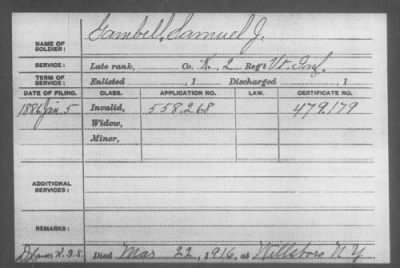 NAME OF SOLDIER: Gambell, Samuel J.
SERVICE: Late rank, Co. K, 2 Reg't Vt. Inf.
TERM OF SERVICE: Enlisted , 1 Discharged , 1
DATE OF FILING. CLASS. APPLICATION NO. LAW. CERTIFICATE NO.
1886 Jan 5 Invalid, 558.268 479.179
Widow,
Minor,
ADDITIONAL SERVICES:
REMARKS:
Died Mar 22, 1916, at Willsboro N Y